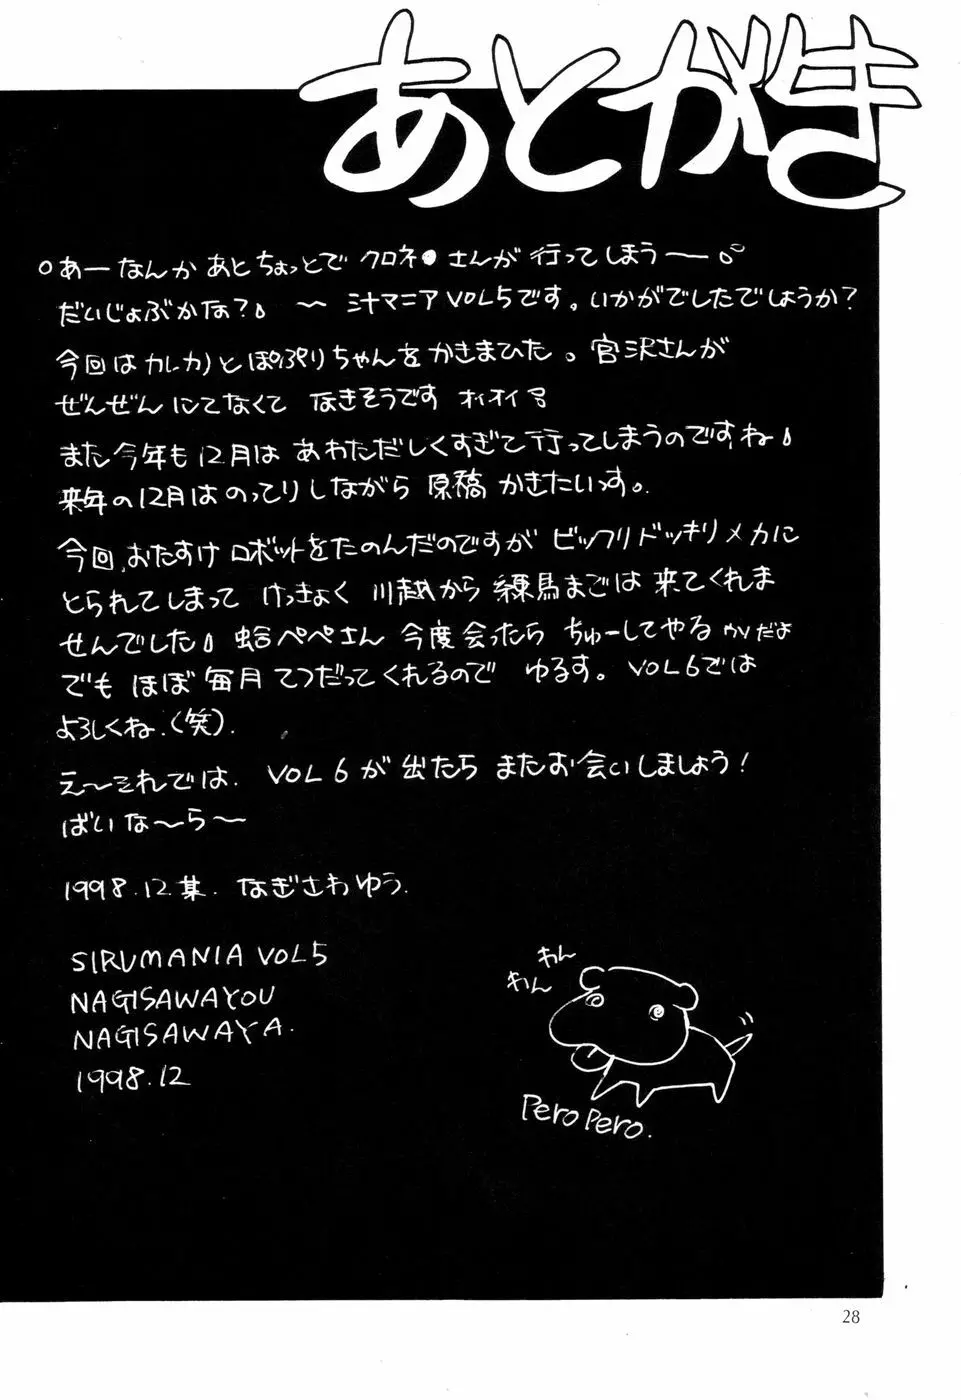 あとがき
あーなんか あとちょっとで クロネ●さんが 行ってしまうー。
だいじょぶかな? 〜 汁マニアVOL5です。いかがでしたでしょうか?
今回はカレカノとぽぷりちゃんをかきまひた。宮沢さんが
ぜんぜんにてなくて なきそうです オイオイ
また今年も12月は あわただしくすぎて行ってしまうのですね
来年の12月はのってりしながら 原稿 かきたいっす。
今回、おたすけ ロボットをたのんだのですが ビックリドッキリメカに
とられてしまって けっきょく 川越から 練馬までは 来てくれま
せんでした 蛤ペペさん 今度会ったら ちゅーしてやる だよ
でも ほぼ毎月 てつだってくれるので ゆるす。VOL6では
よろしくね.(笑).
え〜それでは. VOL 6が 出たら またお会いしましょう!
ばいな〜ら〜
1998.12.某. なぎさわゆう.
SIRUMANIA VOL5
NAGISAWAYOU
NAGISAWAYA.
1998.12
わん
わん
Pero Pero.
28